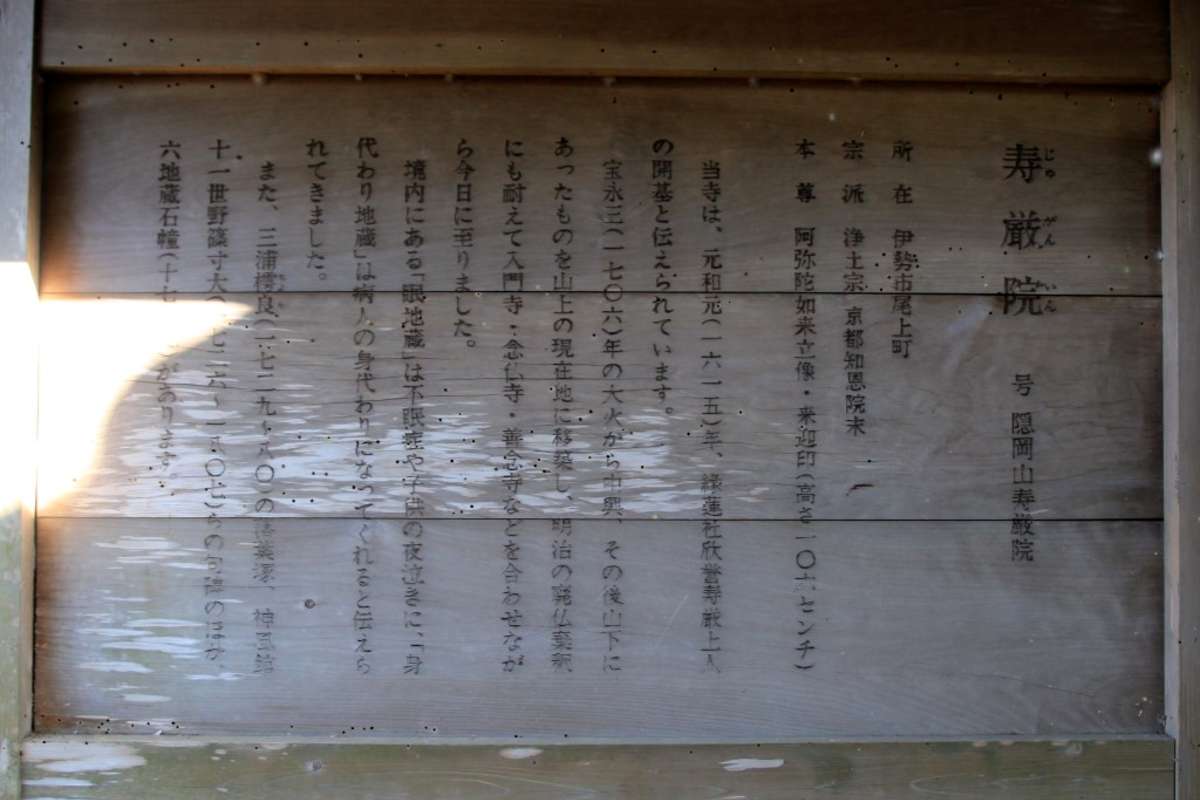 寿厳院 号 隠岡山寿厳院
じゅ げん いん
所在 伊勢市尾上町
宗派 浄土宗 京都知恩院末
本尊 阿弥陀如来立像・来迎印(高さ一〇六センチ)
当寺は、元和元(一六一五)年、縁蓮社欣誉寿厳上人
の開基と伝えられています。
宝永三(一七〇六)年の大火から中興、その後山下に
あったものを山上の現在地に移築し、明治の廃仏棄釈
にも耐えて入門寺・念仏寺・善念寺などを合わせなが
ら今日に至りました。
境内にある「眠地蔵」は不眠症や子供の夜泣きに、「身
代わり地蔵」は病人の身代わりになってくれると伝えら
れてきました。
また、三浦樗良(一七二九〜八〇)の
十一世
六地蔵石幢(十七 )があります。